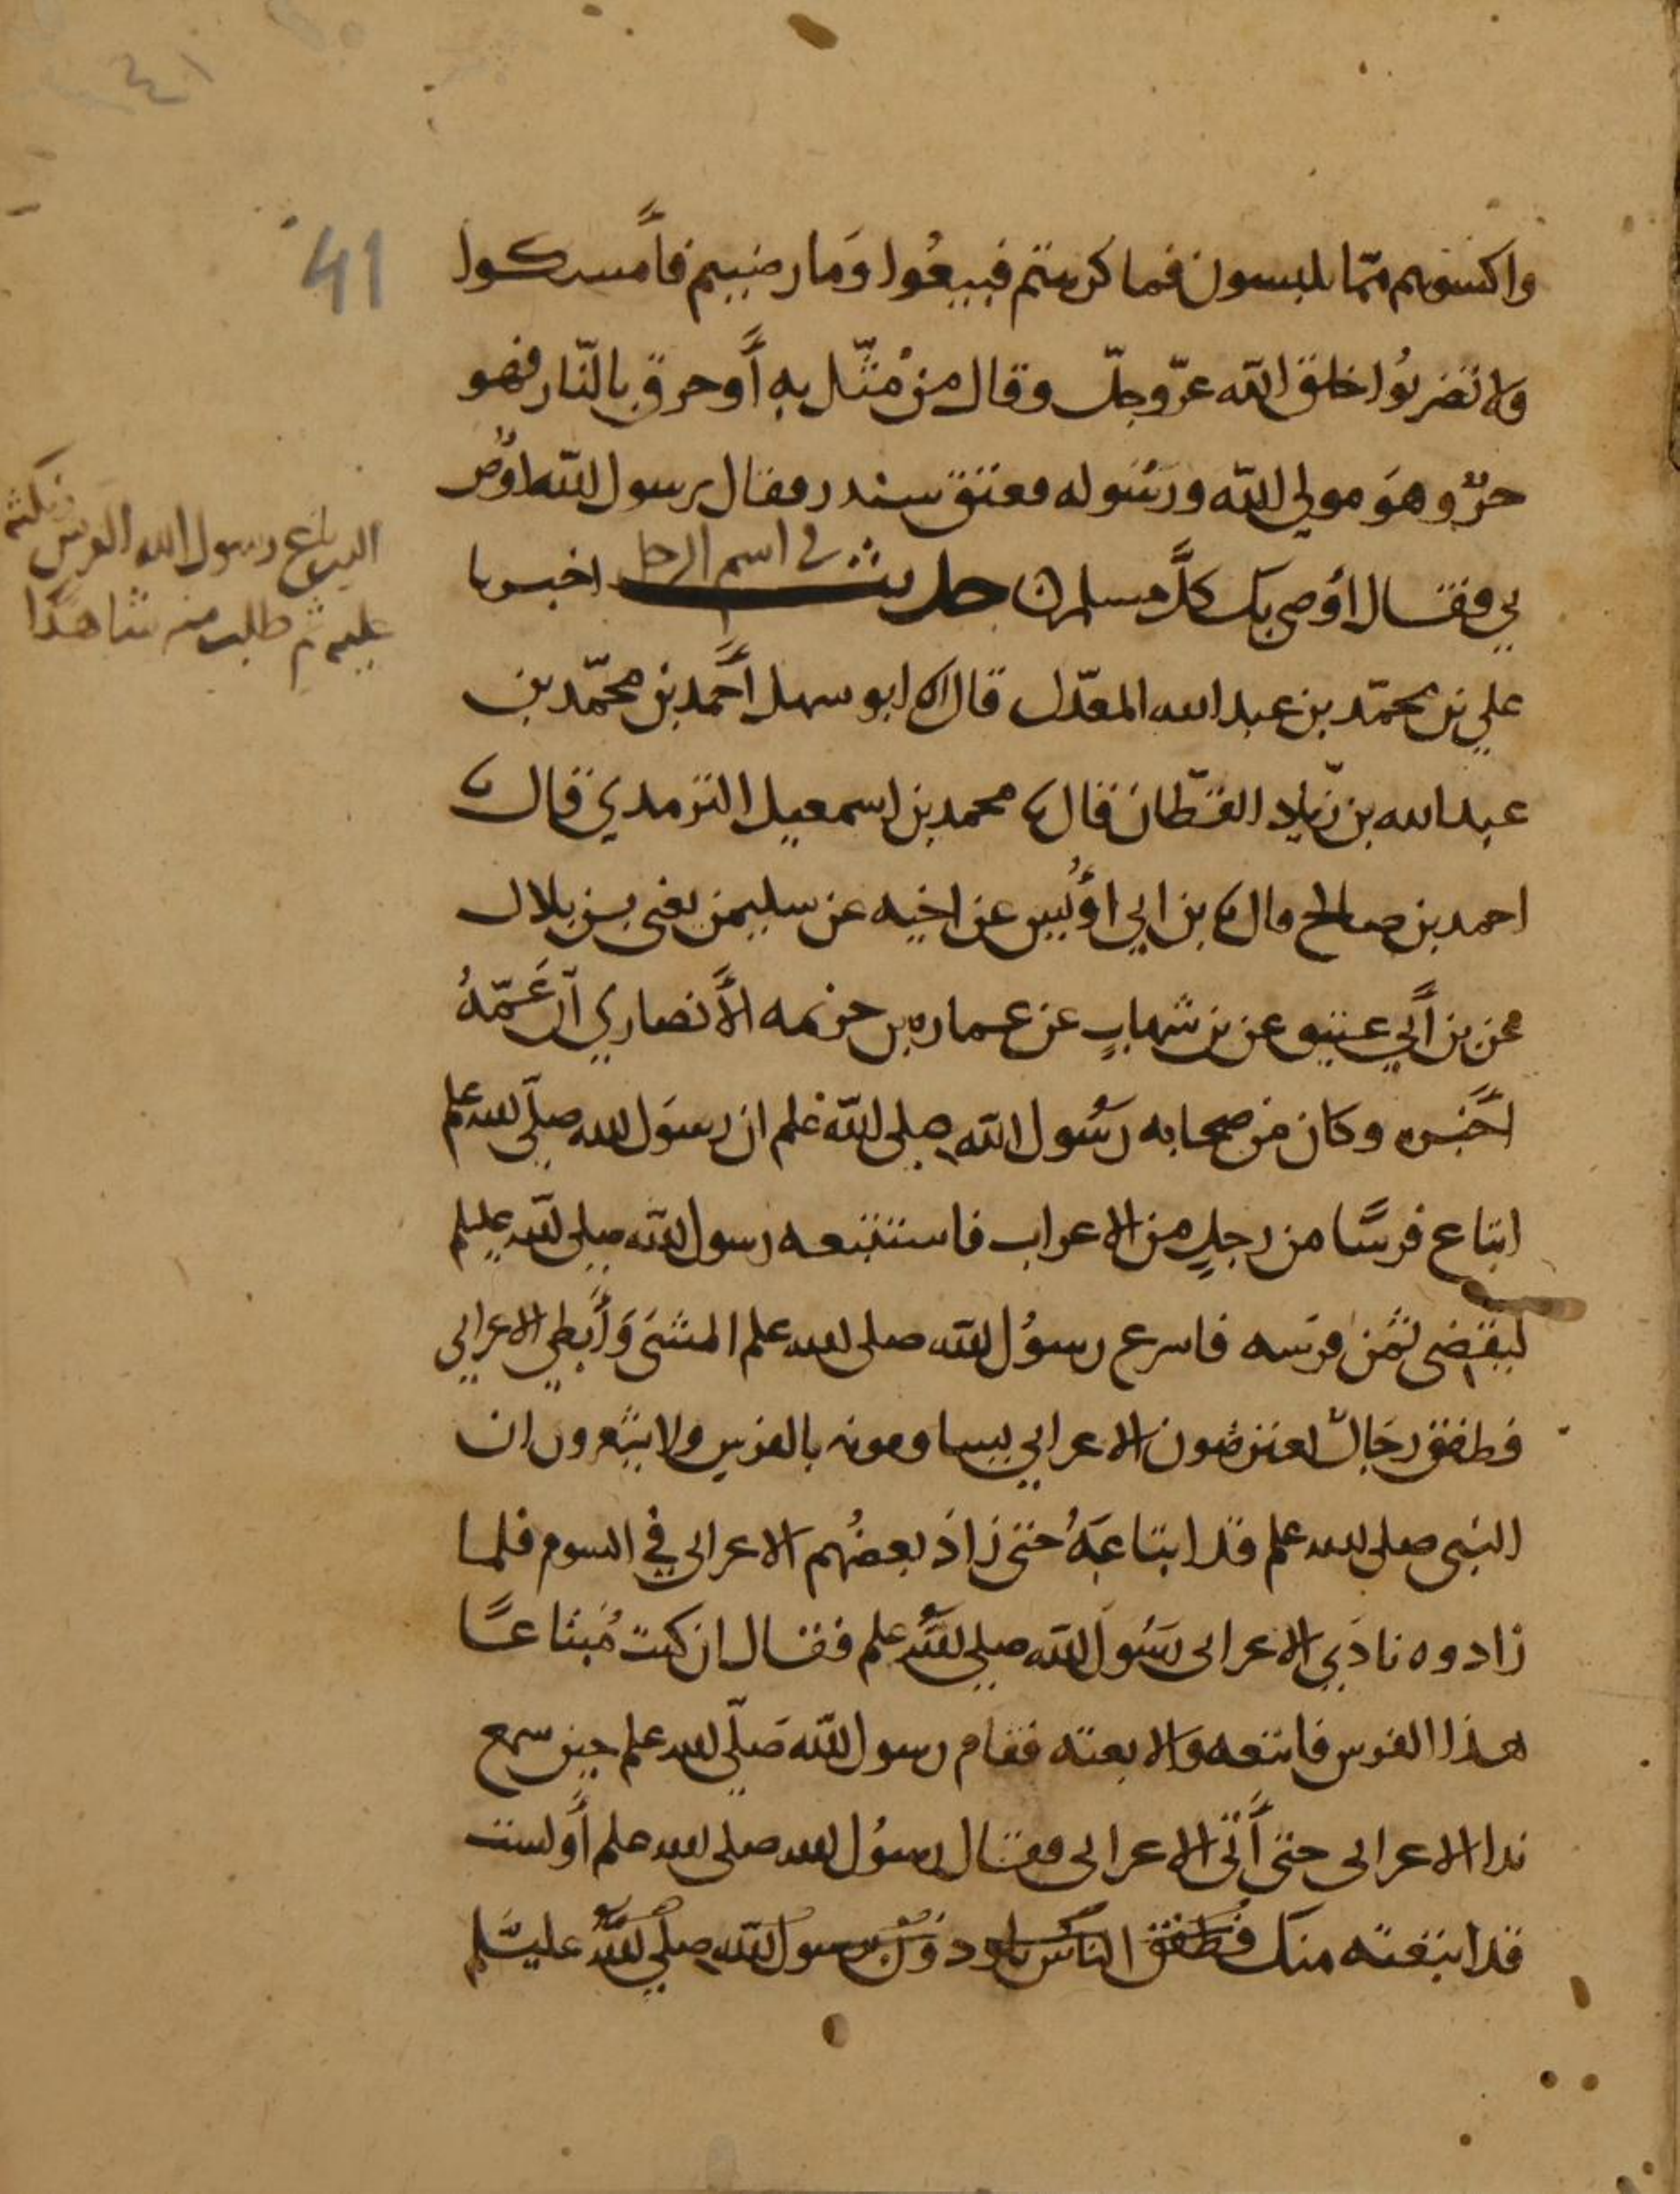 ٤١
41
واكسوهم مما تلبسون فما كرهتم فبيعُوا وَما رضيتم فأمسكوا
ولا تضربُوا خلق الله عزّ وجلّ وقال منْ مثّل بهِ أَو حرق بالنّار فهو
حرٌّ وهوَ مولي الله ورَسُوله فعتق سندر فقال يرسول الله اوْصِ
بي فقال أُوصي بك كلَّ مسلم حديث اخبرنا
في اسم الرجل
علي بن محمّد بن عبد الله المعدّل قال انا ابو سهل أَحمد بن محمّد بن
عبد الله بن زياد القطّان قال نا محمد بن اسمعيل الترمدي قال نا
احمد بن صالح قال نا بن ابي اوُيس عن اخيه عن سليمن يعني بن بلال
عن بن أَبي عتيق عن بن شهابٍ عن عماره بن خزيمه الأَنصاري أنّ عَمّهُ
اخَبره وكان من صحابه رسُول الله صلى الله علم ان رسوَل الله صلّى الله علم
ابتاع فرسًا من رجلٍ من الاعراب فاستتبعه رسول الله صلى الله عليلم
ليقضى ثمن فرسه فاسرع رسوُل الله صلى الله علم المشىَ وَأَبطي الاعرابي
فطفق رجَالٌ يعترضون الاعرابي يساومونه بالفرسِ ولا يشعرون ان
النبى صلى الله علم قد ابتاعَهُ حتى زادَ بعضُهم الاعرابي في السوم فلما
زادوه نادَي الاعرابى رَسُولَ الله صلى الله علم فقال ان كنت مُبتاعًا
هذا الفرس فابتعه وَالا بعته فقام رسول الله صَلّى الله علم حين سمع
ندا الاعرابى حتى أَتى الاعرابى فقال رسوُل الله صلى الله علم أَو لست
قد ابتعته منك فطفق الناس يلوذون برسول الله صلى الله عليسلم
ابتاع رسول الله الفرس
ثم طلب منه شاهدًا